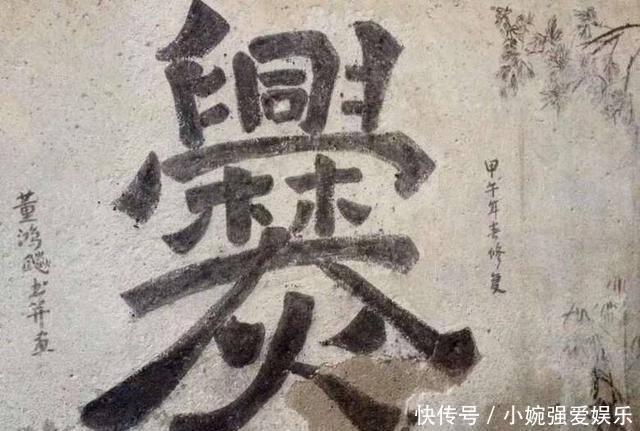 爨
甲午年春修复
董鸿飏书并画
快传号 / 小婉强爱娱乐